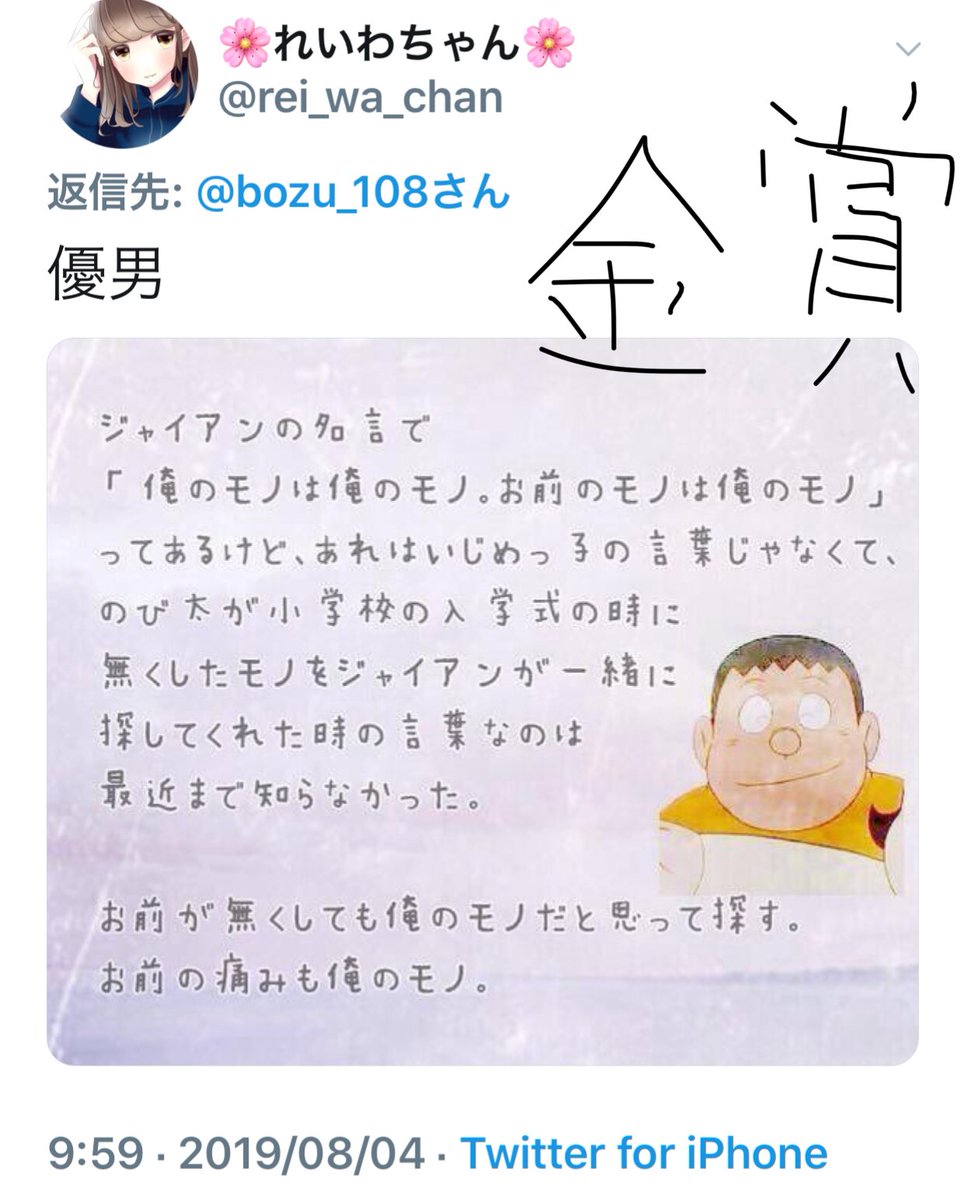 🌸れいわちゃん🌸
@rei_wa_chan
返信先: @bozu_108さん
優男
金賞
ジャイアンの名言で
「俺のモノは俺のモノ。お前のモノは俺のモノ」
ってあるけど、あれはいじめっ子の言葉じゃなくて、
のび太が小学校の入学式の時に
無くしたモノをジャイアンが一緒に
探してくれた時の言葉なのは
最近まで知らなかった。
お前が無くしても俺のモノだと思って探す。
お前の痛みも俺のモノ。
9:59 · 2019/08/04 · Twitter for iPhone